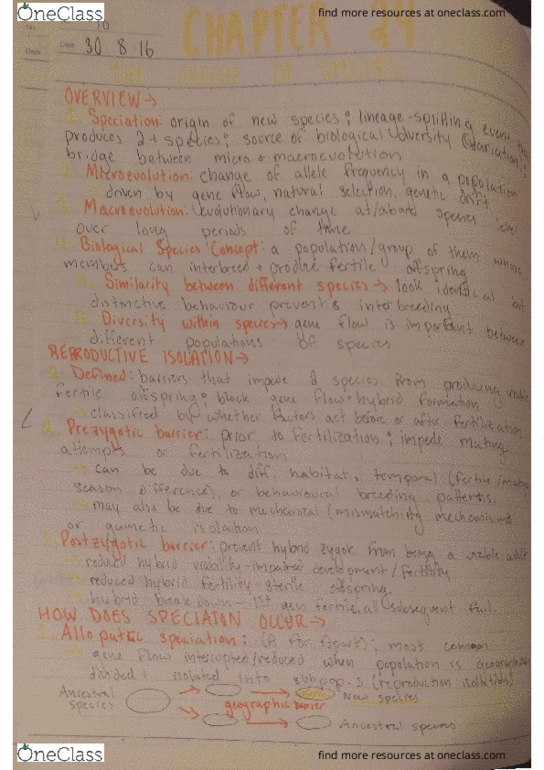 OneClass
find more resources at oneclass.com
No.
Date
Date 30 8 16
CHAPTER 24
THE ORIGIN OF SPECIES
OVERVIEW→
1. Speciation: origin of new species; lineage-splitting event
produces 2+ species; source of biological diversity
bridge between micro + macroevolution
Microevolution: change of allele frequency in a population
driven by gene flow, natural selection, genetic drift
Macroevolution: evolutionary change at/above species level
over long periods of time
Biological Species Concept: a population/group of them whose
members can interbreed + produce fertile offspring
Similarity between different species→ look identical but
distinctive behaviour prevents interbreeding
Diversity within species→ gene flow is important between
different populations of species
REPRODUCTIVE ISOLATION→
Defined: barriers that impede 2 species from producing viable
fertile offspring; block gene flow + hybrid formation
→ classified by whether factors act before or after fertilization
2. Prezygotic barrier: prior to fertilization; impede mating
attempts or fertilization
→ can be due to diff. habitat, temporal (fertile/mating
season difference), or behavioural breeding patterns.
→ may also be due to mechanical (mismatching mechanisms)
or gametic isolation
Postzygotic barrier: prevent hybrid zygote from being a viable adult
→ reduced hybrid viability-impaired development/fertility
→ reduced hybrid fertility-sterile offspring
→ hybrid breakdown-1st gen fertile, all subsequent fail.
HOW DOES SPECIATION OCCUR→
1. Allopatric speciation: (A for Apart); most common
→ gene flow interrupted/reduced when population is geographically
divided + isolated into subpop.s (reproduction isolation)
Ancestral species
geographic barrier
New species
Ancestral species
OneClass
find more resources at oneclass.com